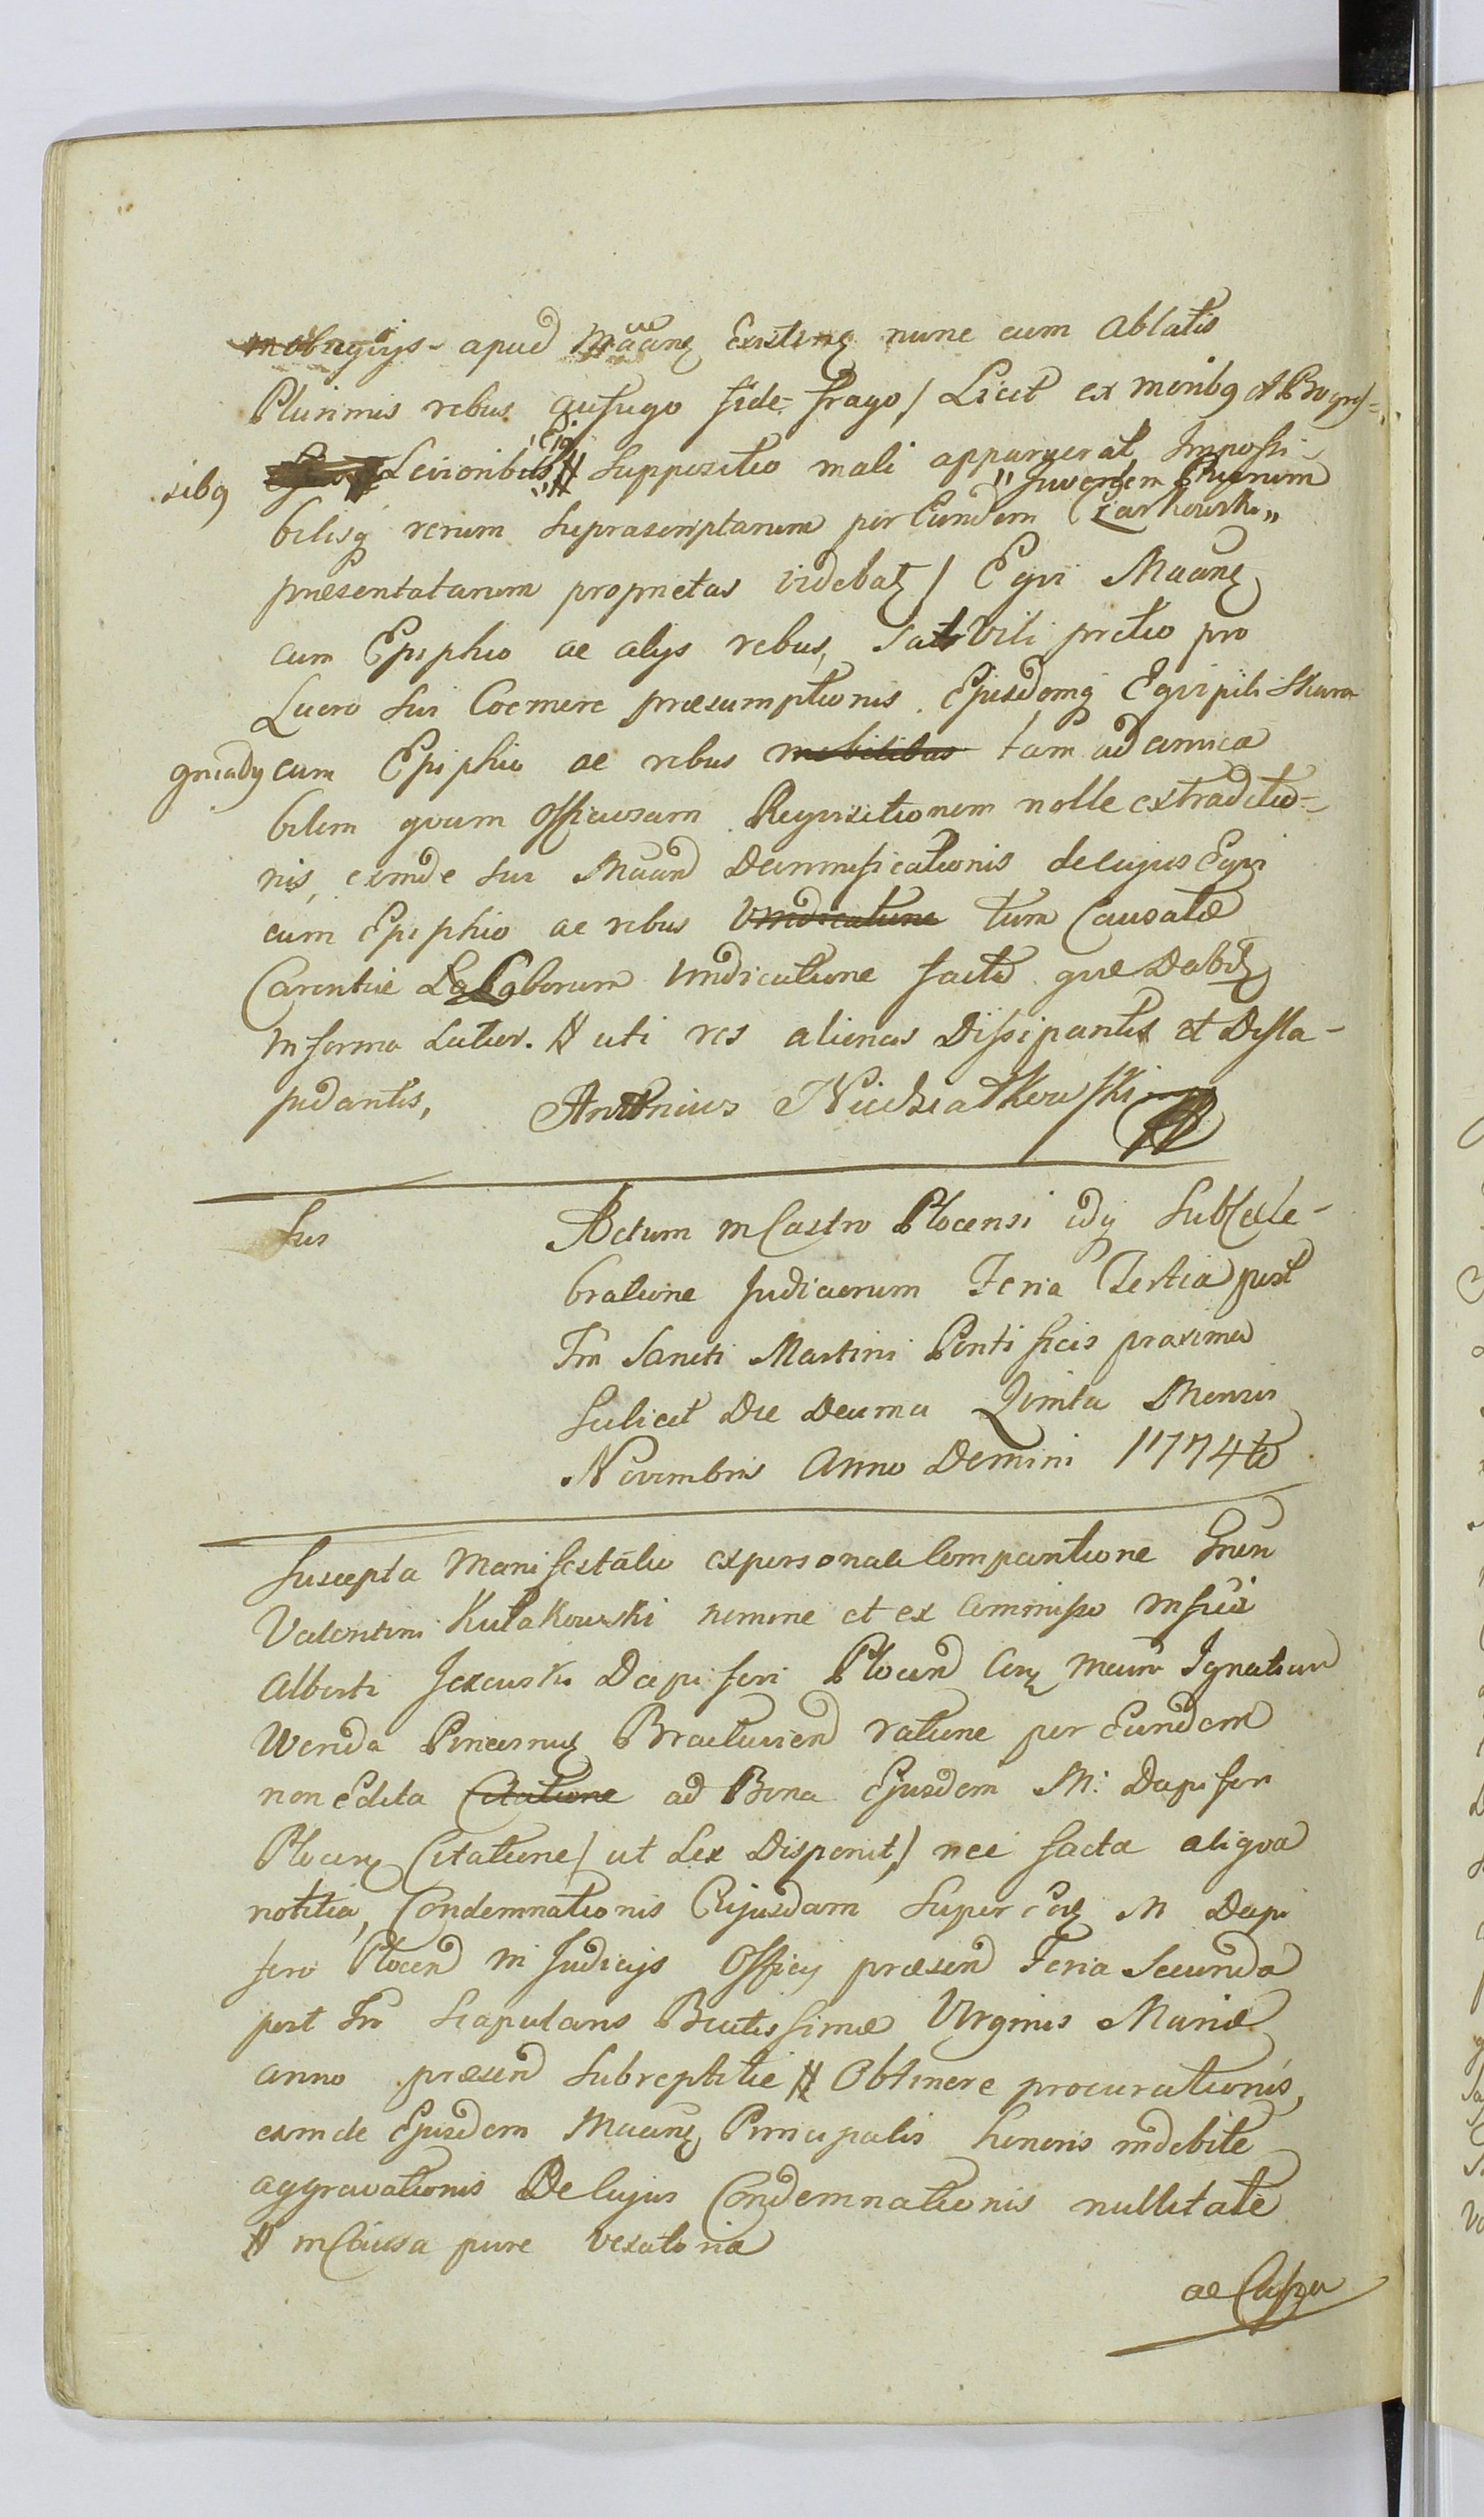 obsequijs apud Maanꝫ Existenꝫ nunc cum Ablatis
Plurimis rebus aufugo fide frago / Licet ex moribꝫ et Progres=
sibꝫ Levioribus Eiꝫ # Suppositio mali apparuerat Impossi-
"Juvenem Puerum
bilisq̃ rerum suprascriptarum per Eundem Czarkowski"
præsentatarum proprietas videbatꝫ / Eqvi Maanꝫ
cum Epiphio ac alijs rebus, Sat Vili pretio pro
Lucro sui Coemere præsumptionis. Ejusdemq̃ Eqvi pili Skaro
gniady cum Epiphio ac rebus mobilibus tam ad amica
bilem qvam Officiosam Reqvisitionem nolle extraditio=
nis, exinde sui Maand Damnificationis de cujus Eqvi
cum Epiphio ac rebus Vindicatione tum Causatæ
Carentiæ Laborum Vindicatione facto qve Dabitꝫ
in forma Latior. # uti res alienas Dissipantis et Dila-
pidantis, Antonius Niedziałkowski
Sus
Actum in Castro Plocensi idq̃ sub Cele-
bratione Judiciorum Feria Tertia post
Fm Sancti Martini Pontificis proxima
Scilicet Die Decima Qvinta Mensis
Novembris Anno Domini 1774to
Suscepta Manifestatio ex personali Comparitione Gnen
Valentini Kułakowski nomine et ex Commisso Mfici
Alberti Jeżewski Dapiferi Plocend Conꝫ Mcum Ignatium
Wenda Pincernꝫ Braclaviend ratione per Eundem
non Edita Citatione ad Bona Ejusdem M: Dapiferi
Plocenꝫ Citatione / ut Lex Disponit,/ nec facta aliqva
notitia, Condemnationis Cujusdam super eodꝫ M Dapi
fero Plocend in Judicijs Officij præsend Feria Secunda
post Fm Scapularis Beatissimæ Virginis Mariæ
anno præsend Subreptitie # Obtinere procurationis,
exinde Ejusdem Maanꝫ Principalis honoris indebite
aggravationis De cujus Condemnationis nullitate
# in Causa pure vexatoria
ac Cassa